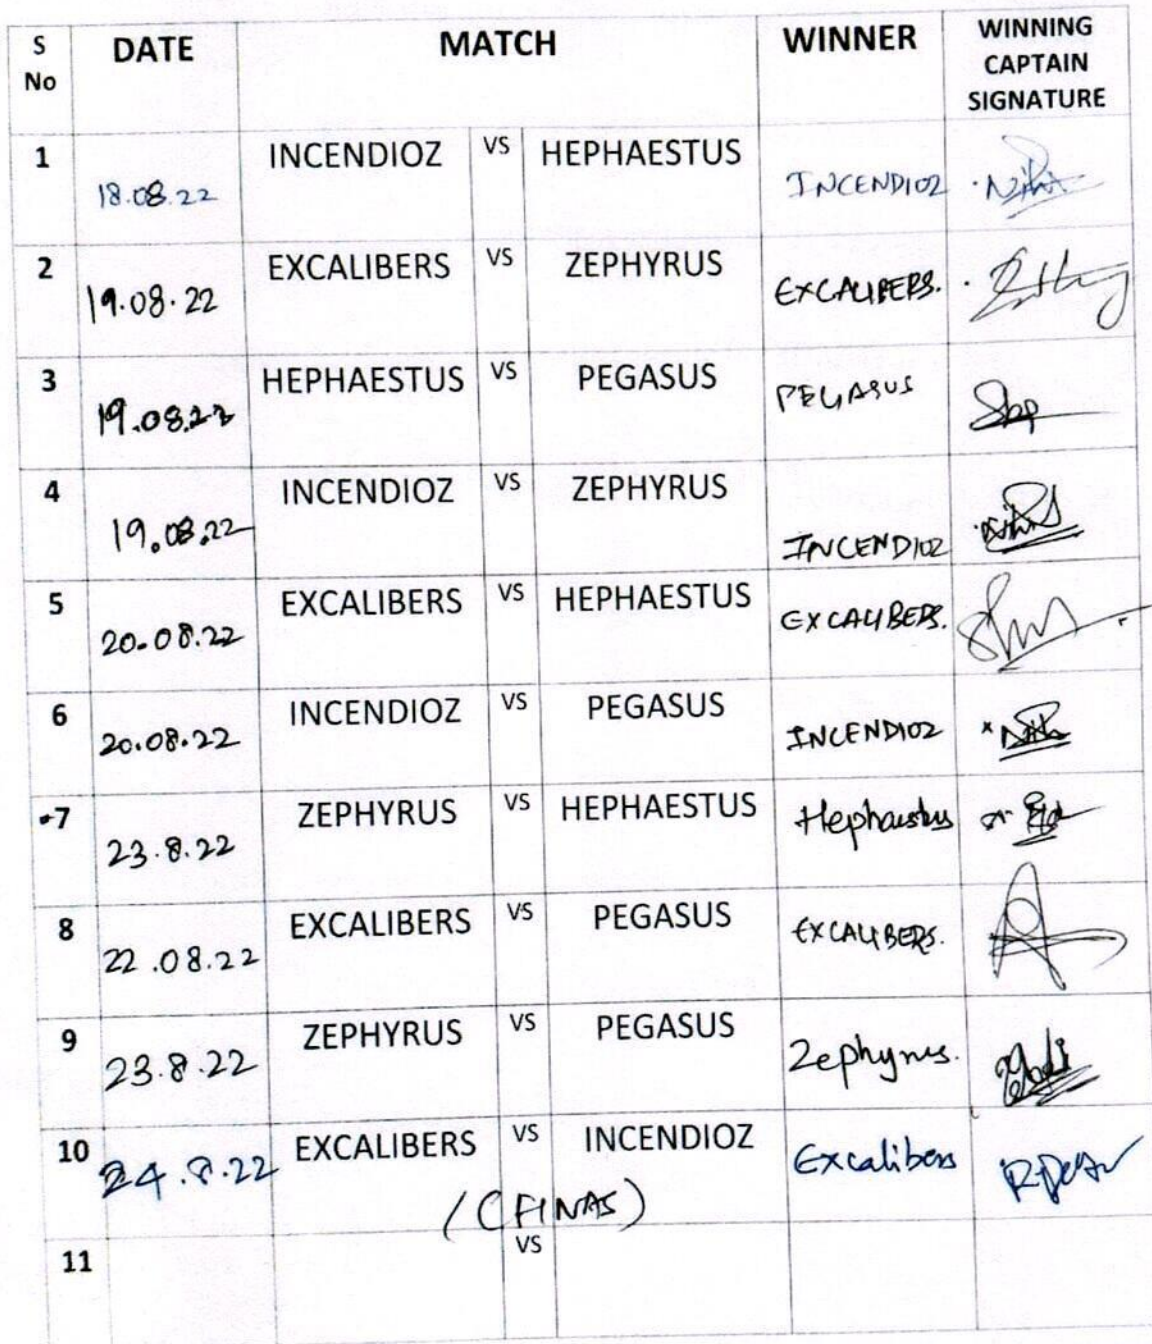 S No DATE MATCH WINNER WINNING CAPTAIN SIGNATURE
1 18.08.22 INCENDIOZ VS HEPHAESTUS INCENDIOZ
2 19.08.22 EXCALIBERS VS ZEPHYRUS EXCALIBERS.
3 19.08.22 HEPHAESTUS VS PEGASUS PEGASUS
4 19.08.22 INCENDIOZ VS ZEPHYRUS INCENDIOZ
5 20.08.22 EXCALIBERS VS HEPHAESTUS EXCALIBERS.
6 20.08.22 INCENDIOZ VS PEGASUS INCENDIOZ
7 23.8.22 ZEPHYRUS VS HEPHAESTUS Hephaestus
8 22.08.22 EXCALIBERS VS PEGASUS EXCALIBERS.
9 23.8.22 ZEPHYRUS VS PEGASUS Zephyrus.
10 24.8.22 EXCALIBERS VS INCENDIOZ Excalibers
(FINAS)
11 VS